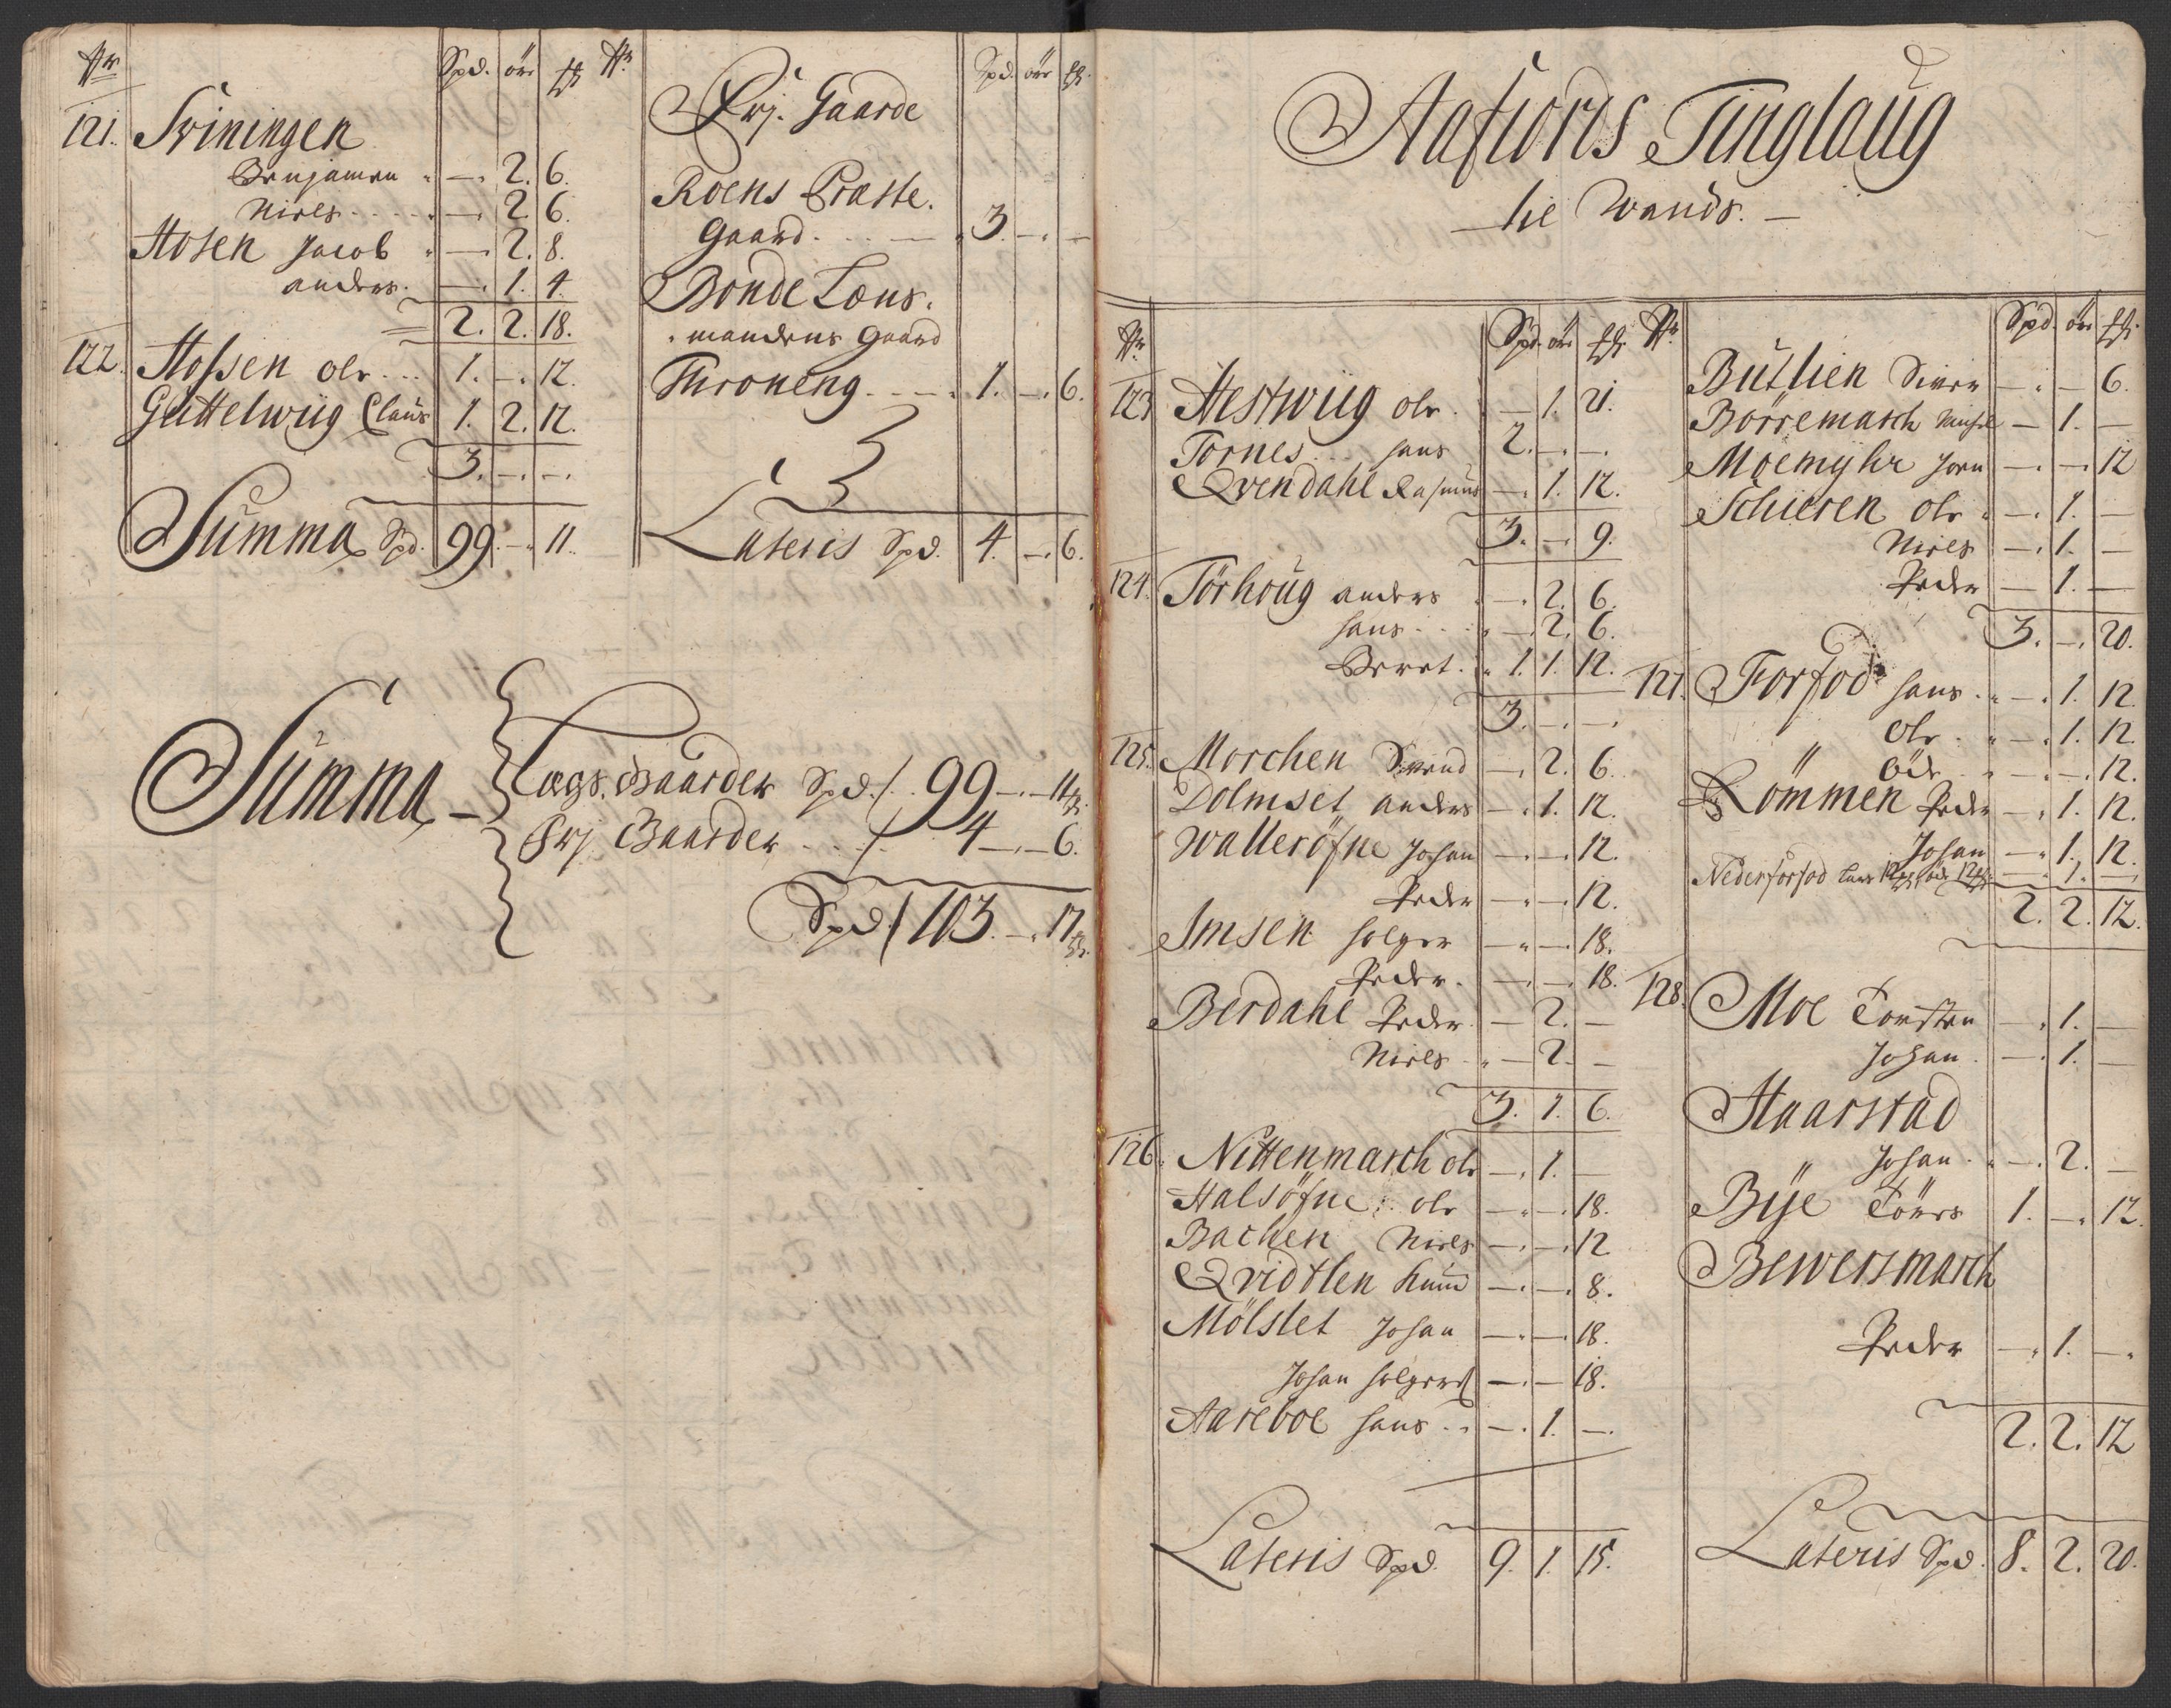 Nr Spd. ort ß
121. Sviningen
Benjamen - 2. 6.
Niels - 2. 6.
Hosen Jacob - 2. 8.
anders. - 1. 4.
2. 2. 18.
122. Hossen ole 1. - 12.
Guttelwiig Claus 1. 2. 12.
3. - -
Summa Spd. 99. - 11.
Nr Spd. ort ß
Frj. Gaarde
Roens Præste.
Gaard. 3. - -
Bonde Lens.
mandens Gaard
Throneng 1. - 6.
Lateris Spd. 4. - 6.
Summa
Lægs. Gaarder Spd. 99 - 11 ß
Frj Gaarder 4 - 6.
Spd. 103. - 17 ß
Aafiords Tinglaug
Nr Spd. ort ß
123 Hestwiig ole - 1. 21.
Tornes hans 2. - -
Qvendahl Rasmus - 1. 12.
3. - 9.
124. Törhoug anders - 2. 6.
hans - 2. 6.
Beret. 1. 1. 12.
3. - -
125. Morchen Svend - 2. 6.
Dolmset anders - 1. 12.
Walleröfne Johan - - 12.
Peder - - 12.
Imsen holger - - 18.
Peder. - - 18.
Berdahl Peder - 2. -
Niels - 2. -
3. 1. 6.
126. Nittenmarch ole - 1. -
Halsöfne ole - - 18.
Bachen Niels - - 12
Qvidtlen Knud - - 8.
Mölslet Johan - - 18
Johan holgers - - 18.
Aareboe hans - 1. -
Lateris Spd. 9. 1. 15.
Nr Spd. ort ß
Butlien Siver - - 6.
Börremarch - 1. -
Moemyhr Jorn - - 12
Schieren ole - 1. -
Niels - 1. -
Peder - 1. -
3. - 20.
127. Forfod hans - 1. 12
ole - 1. 12.
- - 12.
Römmen Peder - 1. 12.
Johan - 1. 12
Nederforfod - 1. -
2. 2. 12.
128. Moe Torsten - 1. -
Johan - 1. -
Haarstad
Johan - 2. -
Bye 1. - 12.
Bewersmarch
Peder - 1. -
2. 2. 12
Lateris Spd. 8. 2. 20.